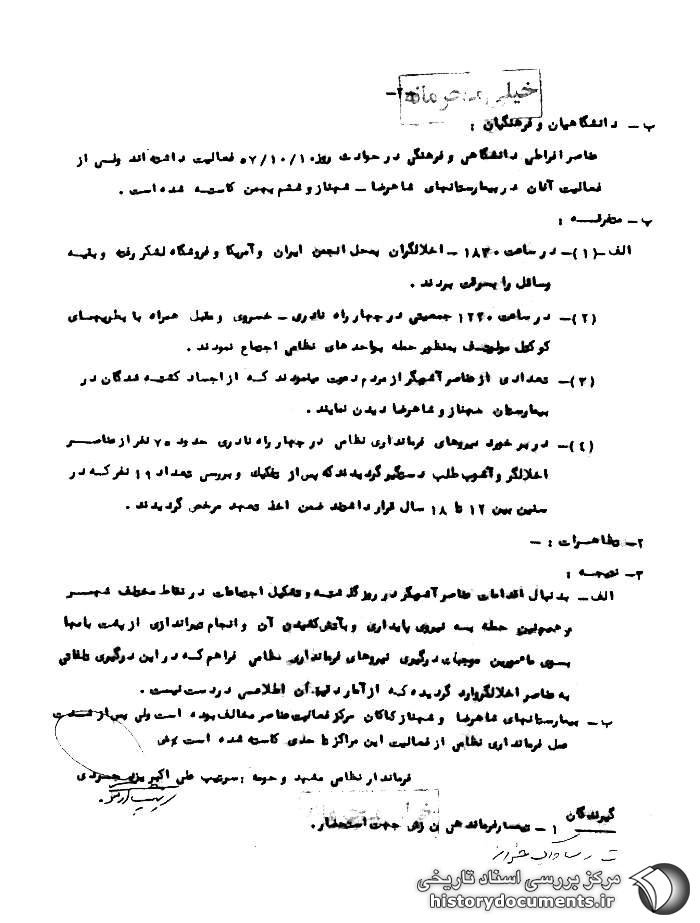 خیلی محرمانه
-۲-
ب – دانشگاهیان و فرهنگیان :
عناصر افراطی دانشگاهی و فرهنگی در حوادث روز ۵۷/۱۰/۱۰ فعالیت داشته‌اند ولی از
فعالیت آنان در بیمارستانهای شاهرضا – شهناز و ششم بهمن کاسته شده است .
پ – متفرقه :
الف –(۱)– در ساعت ۱۸۳۰ – اخلالگران بمحل انجمن ایران و آمریکا و فروشگاه لشکر رفته و بقیه
وسائل را بسرقت بردند .
(۲)– در ساعت ۱۲۴۰ جمعیتی در چهار راه نادری – خسروی و مقبل همراه با بطریهای
کوکتل مولوتف بمنظور حمله بواحد های نظامی اجتماع نمودند .
(۳)– تعدادی از عناصر آشوبگر از مردم دعوت مینمودند که از اجساد کشته شدگان در
بیمارستان شهناز و شاهرضا دیدن نمایند .
(۴)– در برخورد نیروهای فرمانداری نظامی در چهار راه نادری حدود ۷۰ نفر از عناصر
اخلالگر و آشوب طلب دستگیر گردیدند که پس از تفکیک و بررسی تعداد ۱۹ نفر که در
سنین بین ۱۲ تا ۱۸ سال قرار داشتند ضمن اخذ تعهد مرخص گردیدند .
۲– تظاهرات : –
۳– نتیجه :
الف – بدنبال اقدامات عناصر آشوبگر در روز گذشته و تشکیل اجتماعات در نقاط مختلف شهر
و همچنین حمله بسه نیروی پایداری و بآتش کشیدن آن و انجام تیراندازی از پشت بامها
بسوی مامورین موجبات درگیری نیروهای فرمانداری نظامی فراهم که در این درگیری تلفاتی
به عناصر اخلالگر وارد گردیده که از آمار دقیق آن اطلاعی در دست نیست .
ب – بیمارستانهای شاهرضا و شهناز کاکان مرکز فعالیت عناصر مخالف بوده است ولی پس از شدت
عمل فرمانداری نظامی از فعالیت این مراکز تا حدی کاسته شده است
فرماندار نظامی مشهد و حومه : سرتیپ علی اکبر یزدجردی
گیرندگان
۱ – تیمسار فرماندهی ن زش جهت استحضار .
خیلی محرمانه
مرکز بررسی اسناد تاریخی
historydocuments.ir